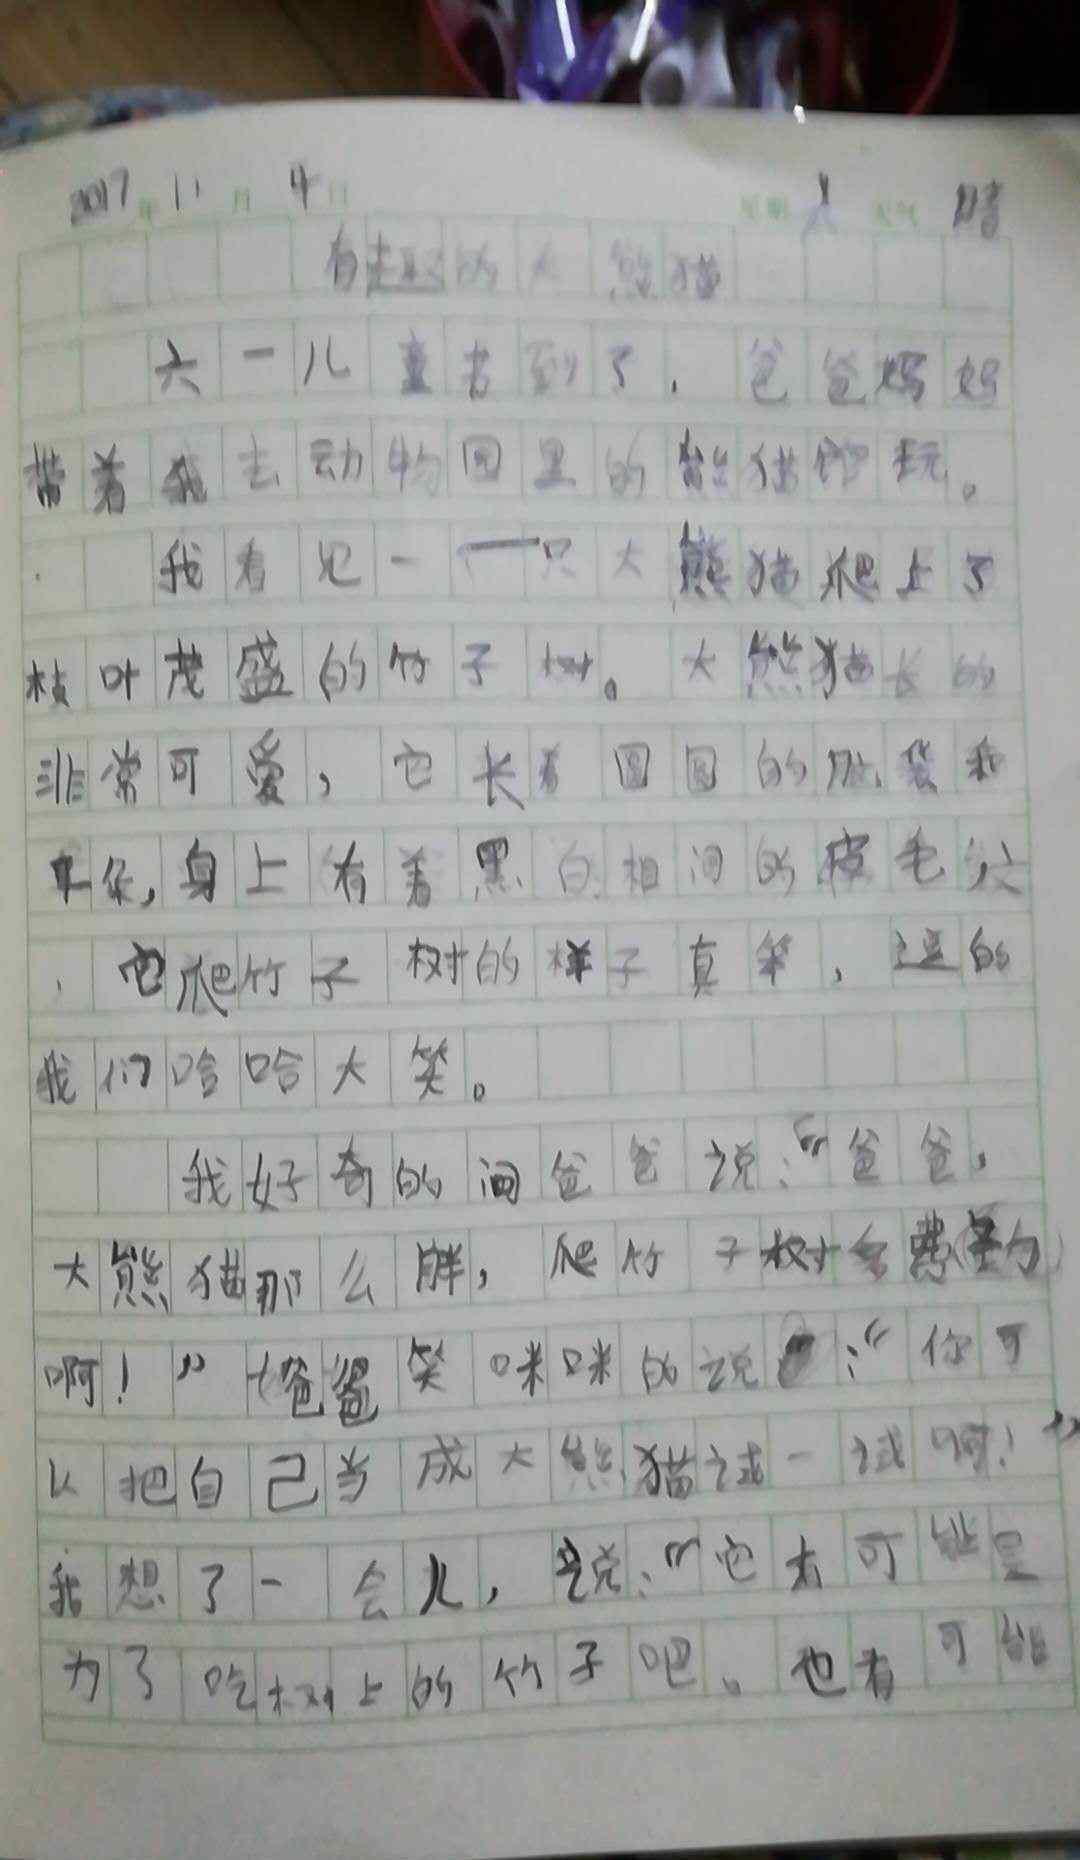 2017年11月4日 星期六 天气 晴
有趣的大熊猫
六一儿童节到了,爸爸妈妈
带着我去动物园里的熊猫馆玩。
我看见一一只大熊猫爬上了
枝叶茂盛的竹子树。大熊猫长的
非常可爱,它长着圆圆的脸袋和
耳朵,身上有着黑白相间的皮毛
,它爬竹子树的样子真笨,逗的
我们哈哈大笑。
我好奇的问爸爸说:“爸爸,
大熊猫那么胖,爬竹子树会费(劲)
啊!”爸爸笑咪咪的说:“你可
以把自己当成大熊猫试一试啊!”
我想了一会儿,说:“它有可能是
为了吃树上的竹子吧。也有可能